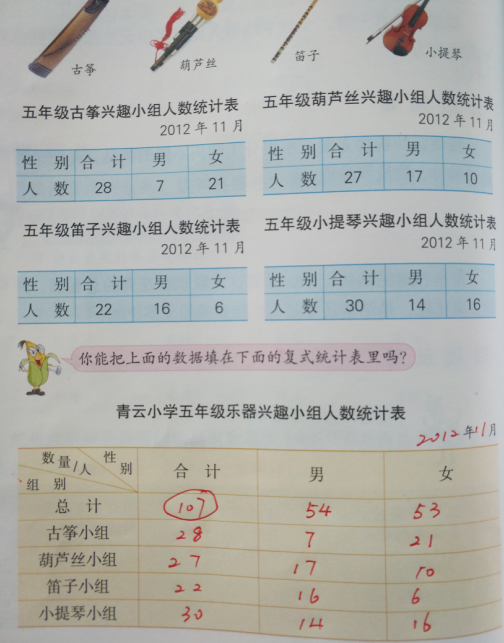 古筝 葫芦丝 笛子 小提琴
五年级古筝兴趣小组人数统计表
2012年11月
性 别 合 计 男 女
人 数 28 7 21
五年级葫芦丝兴趣小组人数统计表
2012年11月
性 别 合 计 男 女
人 数 27 17 10
五年级笛子兴趣小组人数统计表
2012年11月
性 别 合 计 男 女
人 数 22 16 6
五年级小提琴兴趣小组人数统计表
2012年11月
性 别 合 计 男 女
人 数 30 14 16
你能把上面的数据填在下面的复式统计表里吗?
青云小学五年级乐器兴趣小组人数统计表
2012年11月
数量/人 性 别
组 别 合 计 男 女
总 计 107 54 53
古筝小组 28 7 21
葫芦丝小组 27 17 10
笛子小组 22 16 6
小提琴小组 30 14 16